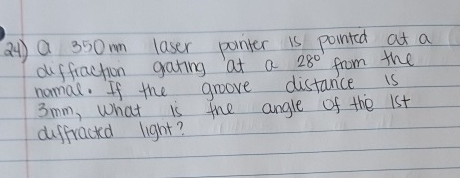 24) a 350 nm laser pointer is pointed at a
diffraction gating at a 28° from the
normal. If the groove distance is
3mm, what is the angle of the 1st
diffracted light?